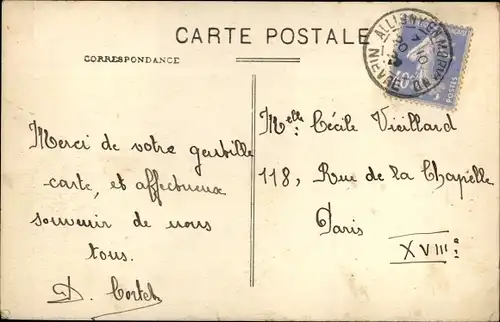 CARTE POSTALE
CORRESPONDANCE
ALLIGNY EN MORVAND
NIÈVRE
Merci de votre gentille
carte, et affectueux
souvenir de nous
tous.
D. Cortet
Melle Cécile Vieillard
118, Rue de la Chapelle
Paris
XVIIIe
40c
POSTES